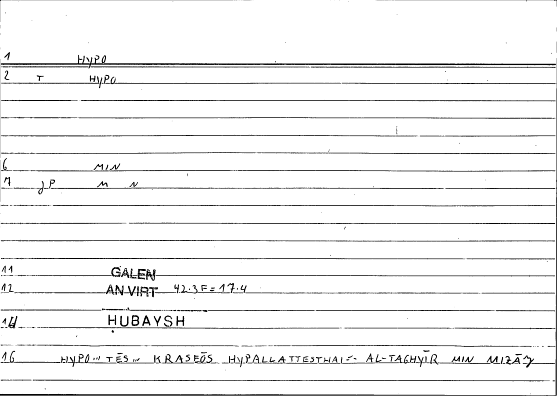 1 HYPO
2 T HYPO
6 MIN
7 JP M N
11 GALEN
12 AN VIRT 42.3F=17.4
14 ḤUBAYSH
16 HYPO... TĒS... KRASEŌS HYPALLATTESTHAI = AL-TAGHYĪR MIN MIZĀǦ